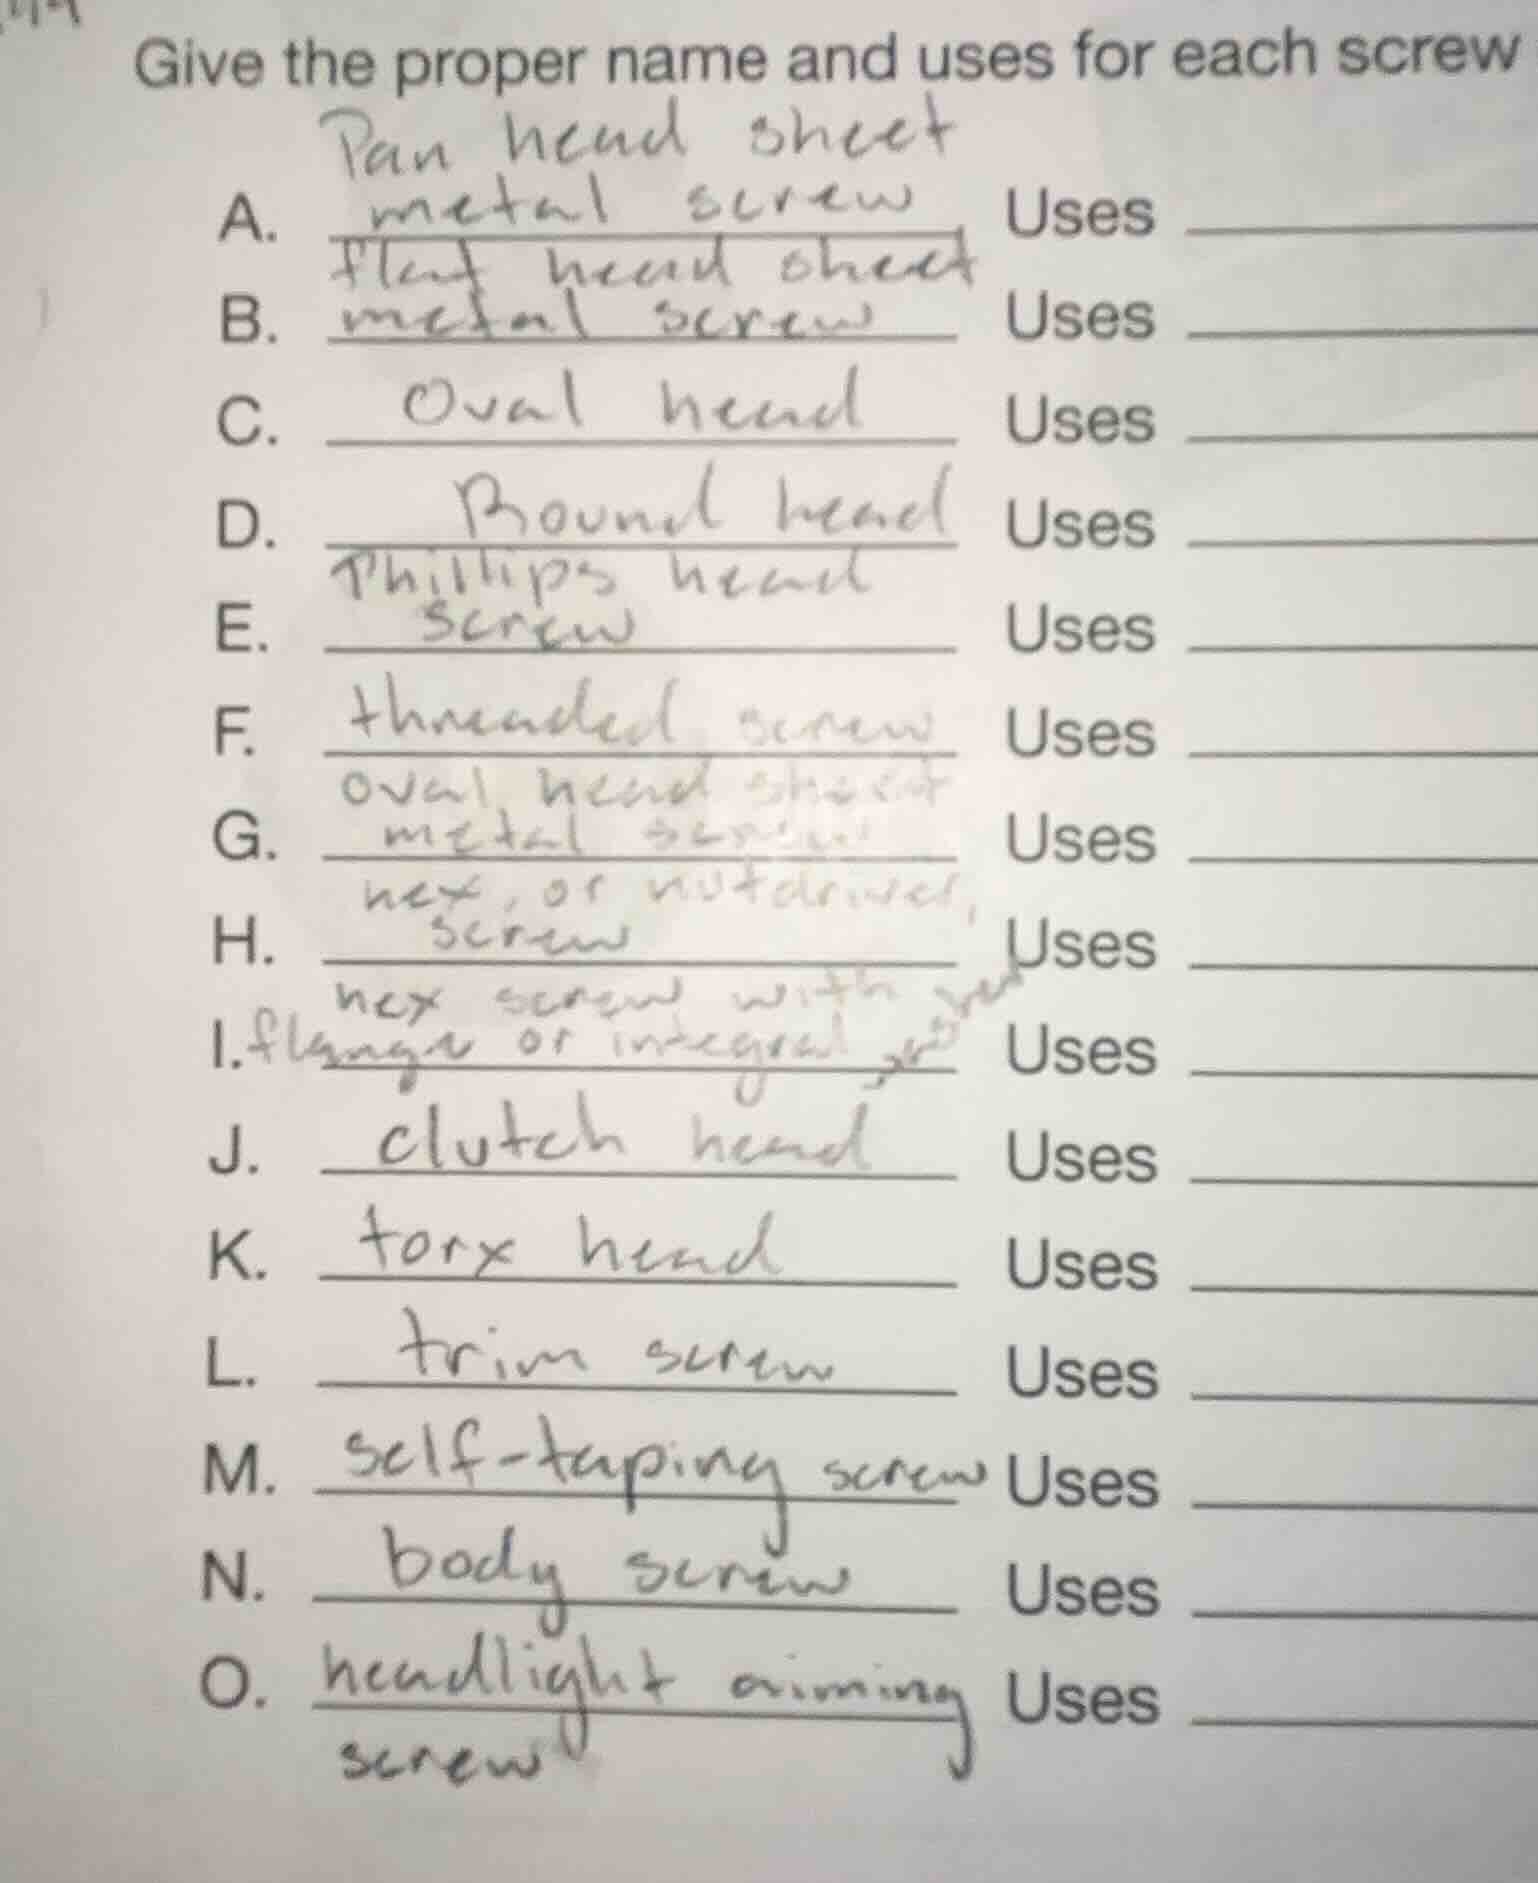 Give the proper name and uses for each screw
Pan head sheet
A. metal screw Uses
flat head sheet
B. metal screw Uses
C. Oval head Uses
D. Round head Uses
Phillips head
E. screw Uses
F. threaded screw Uses
oval head sheet
G. metal screw Uses
hex, or nutdriver,
H. screw Uses
hex screw with
I. flange or integral washer Uses
J. clutch head Uses
K. torx head Uses
L. trim screw Uses
M. self-taping screw Uses
N. body screw Uses
O. headlight aiming Uses
screw